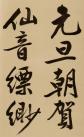 元旦朝賀
仙音縹緲